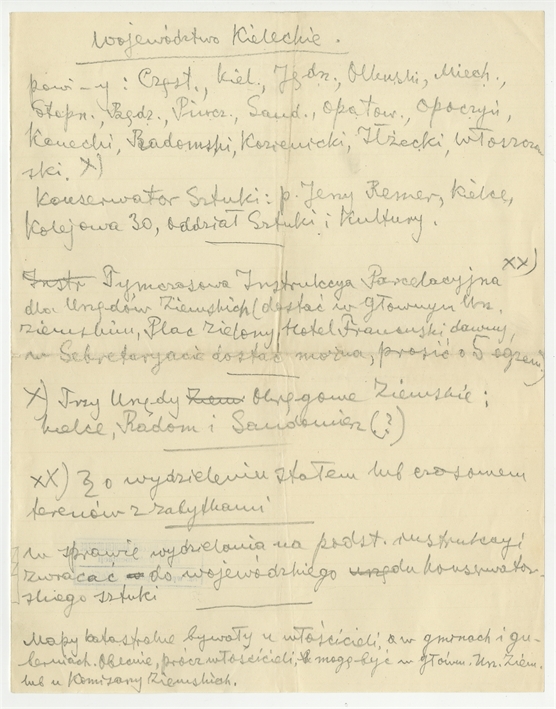 Województwo Kieleckie.
pow-y: Częst., Kiel., Jędrz., Olkuski, Miech.,
Stopn. Będz., Pincz., Sand., Opatow., Opoczyń
Konecki, Radomski, Kozienicki, Iłżecki, Włoszczo
ski. X)
Konserwator Sztuki: p. Jerzy Remer, Kielce,
Kolejowa 30, oddział Sztuki i Kultury.
Instr Tymczasowa Instrukcya Parcelacyjna XX)
dla Urzędów Ziemskich (dostać w Głównym Urz.
Ziemskim, Plac Zielony, Hotel Francuski dawny,
w Sekretaryacie dostać można, prosić o 5 egzem.)
X) Trzy Urzędy Ziem Okręgowe Ziemskie:
Kielce, Radom i Sandomierz (?)
XX) o wydzieleniu stałem lub czasowem
terenów z zabytkami
w sprawie wydzielania na podst. instrukcyi
zwracać do wojewódzkiego urzędu konserwator-
skiego sztuki
Mapy katastralne bywały u właścicieli, a w gminach i gu-
berniach. Obecnie, prócz właścicieli, mogą być w główn. Urz. Ziem.
lub u Komisarzy Ziemskich.